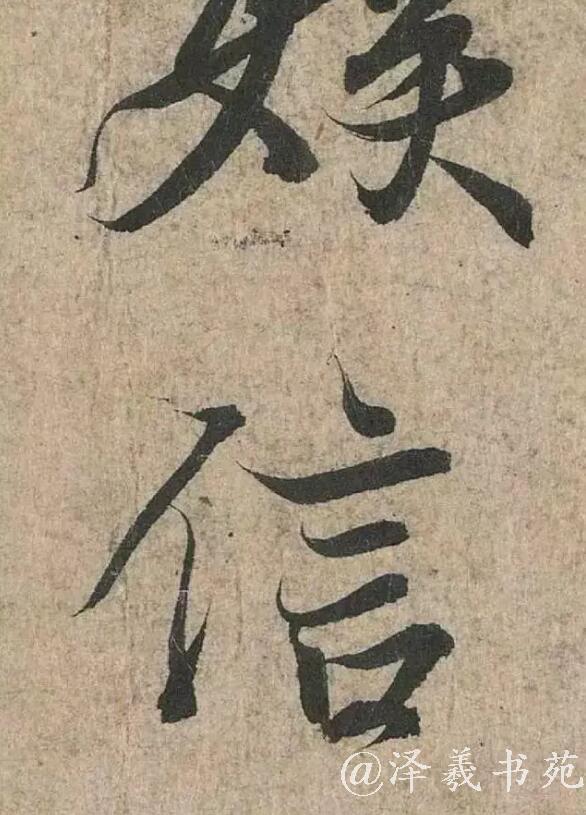 娛
信
@泽羲书苑